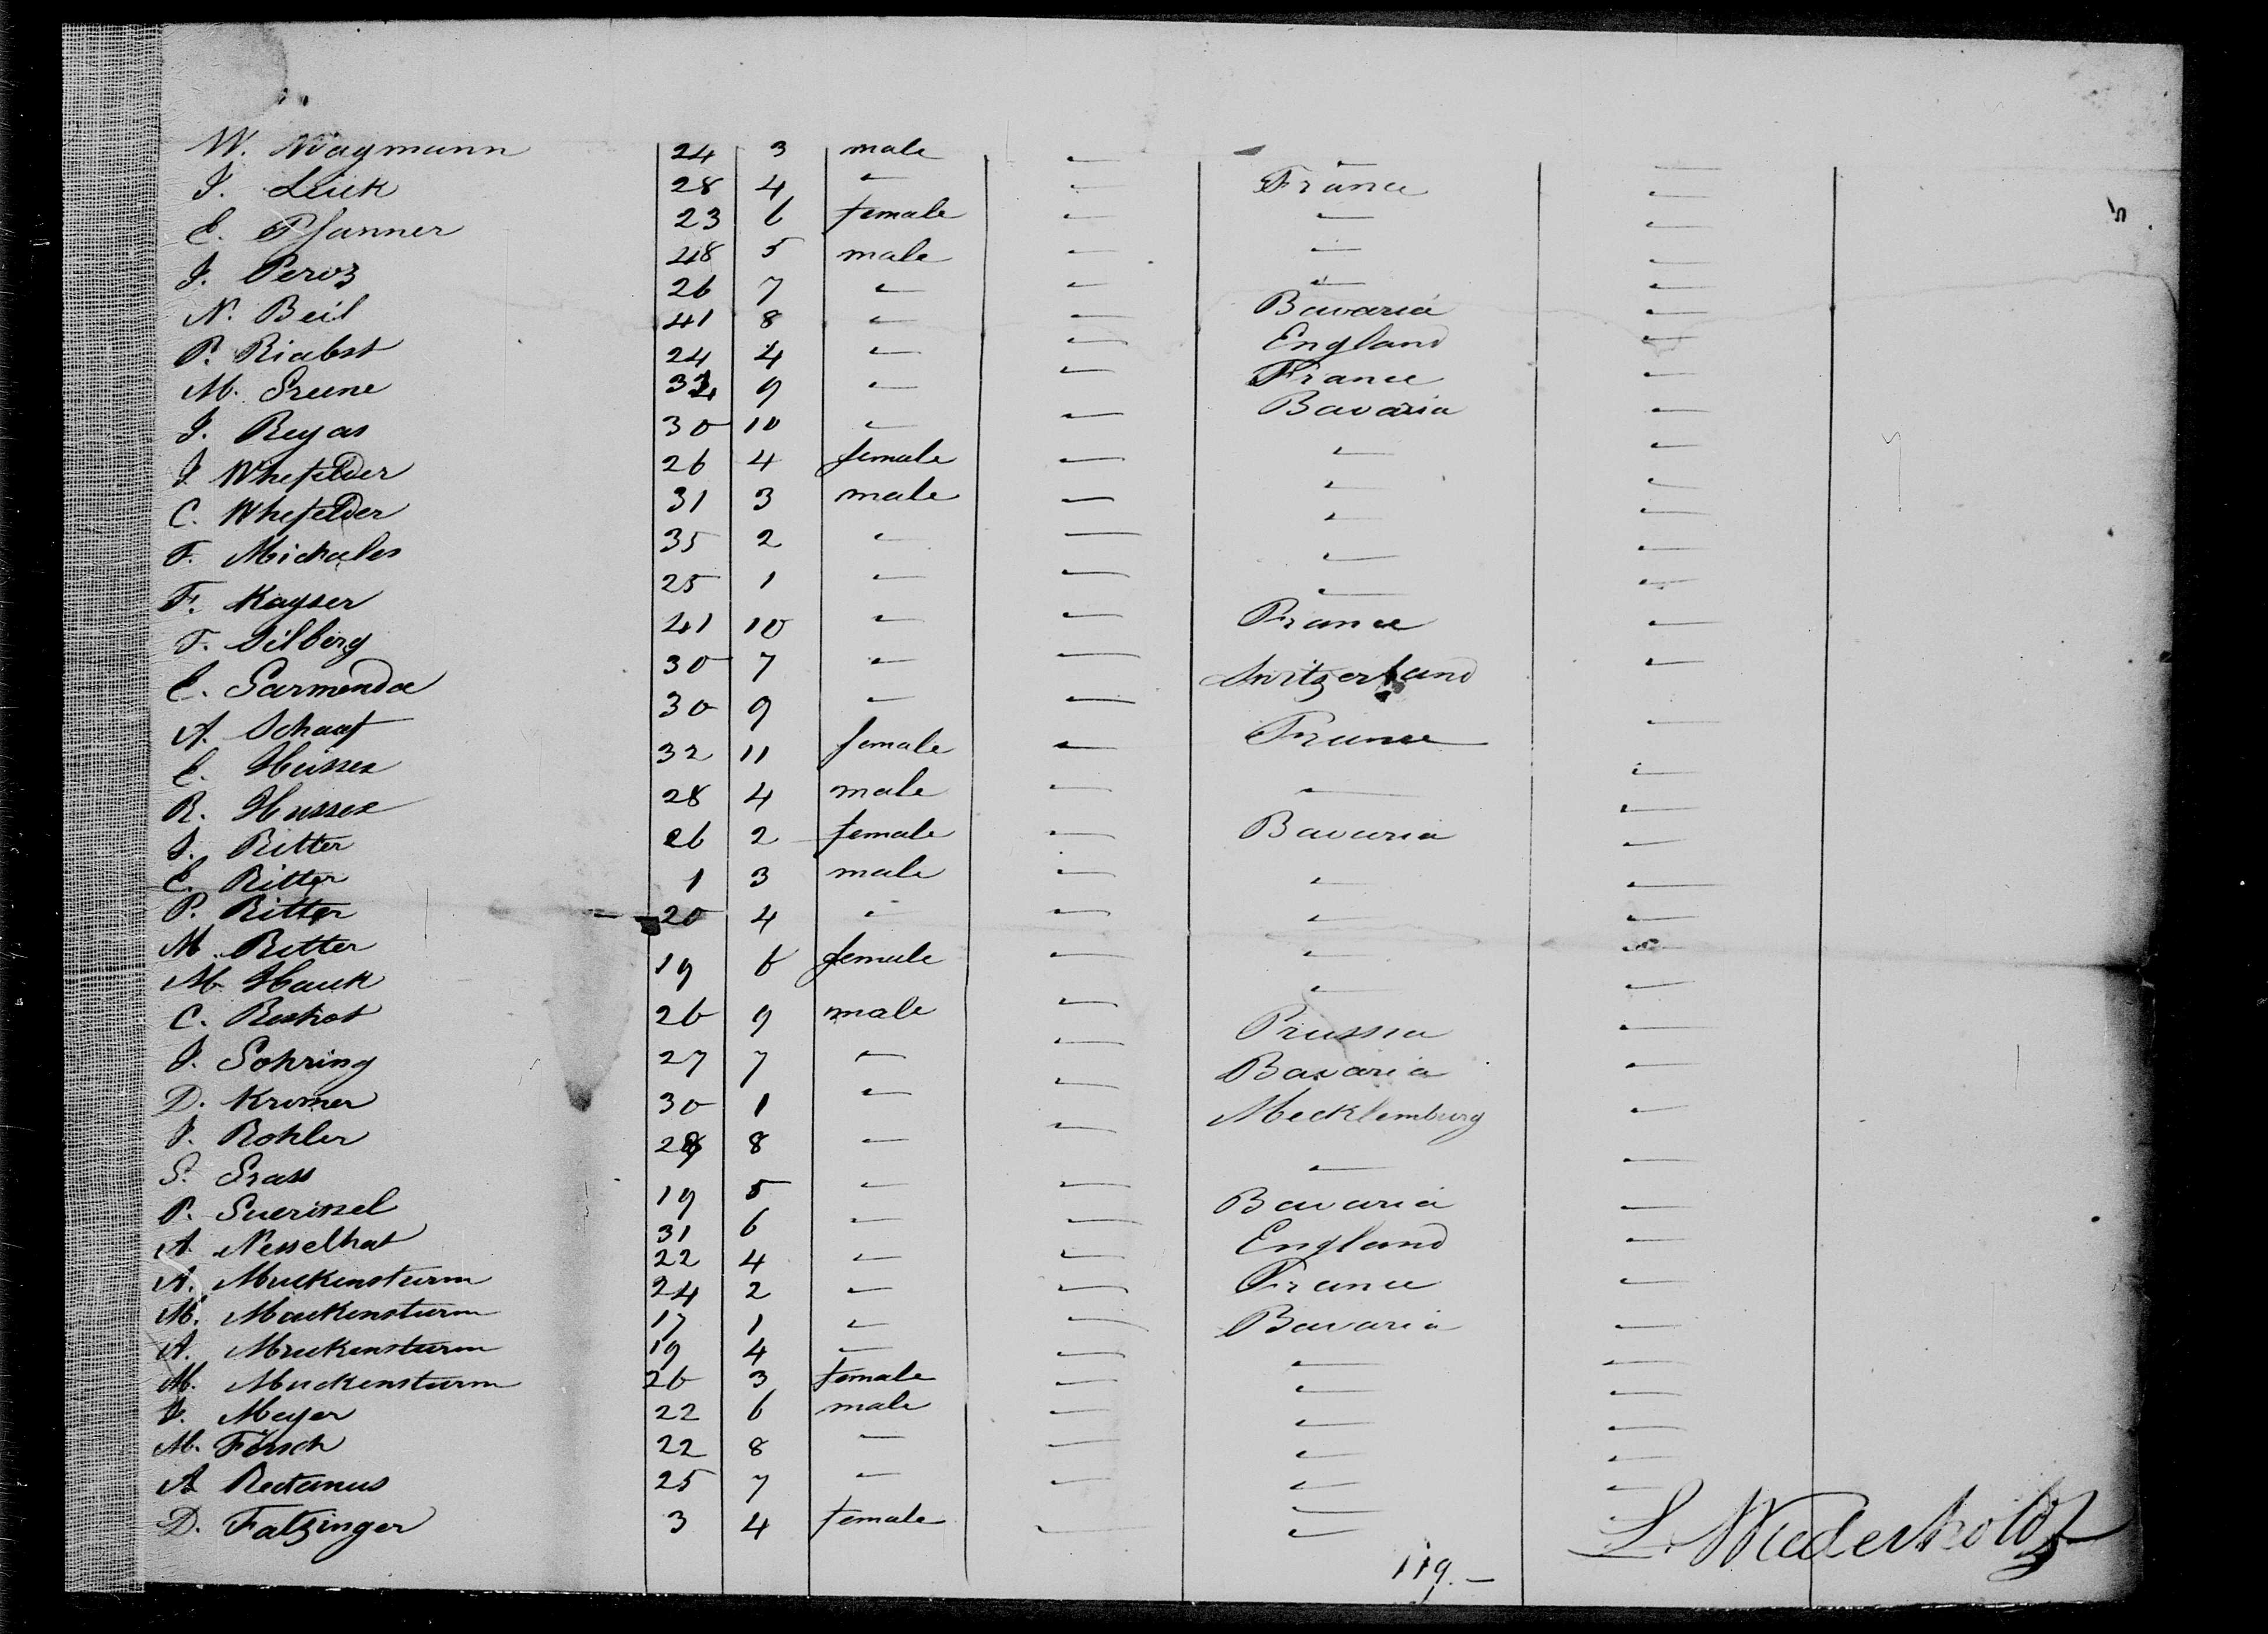 W. Wagmann 24 3 male " "
J. Leick 28 4 " " France "
E. Pfanner 23 6 female " " "
J. Peroz 48 5 male " " "
N. Beil 26 7 " " " "
P. Riabst 41 8 " " Bavaria "
M. Greene 24 4 " " England "
J. Reyas 34 9 " " France "
J. Whefelder 30 10 " " Bavaria "
C. Whefelder 26 4 female " " "
F. Michales 31 3 male " " "
F. Kayser 35 2 " " " "
F. Silberg 25 1 " " " "
E. Garmenda 41 10 " " France "
A. Schaaf 30 7 " " Switzerland "
E. Heisser 30 9 " " France "
R. Husser 32 11 female " " "
J. Ritter 28 4 male " Bavaria "
E. Ritter 26 2 female " " "
P. Ritter 1 3 male " " "
M. Ritter 20 4 " " " "
M. Hauk 19 6 female " " "
C. Reshot 26 9 male " Prussia "
J. Gohring 27 7 " " Bavaria "
D. Kromer 30 1 " " Mecklemburg "
J. Rohler 28 8 " " " "
S. Grass 19 5 " " Bavaria "
P. Guerissel 31 6 " " England "
A. Nesselhat 22 4 " " France "
A. Muckensturm 24 2 " " Bavaria "
M. Muckensturm 17 1 " " " "
A. Muckensturm 19 4 " " " "
M. Muckensturm 26 3 female " " "
J. Mayer 22 6 male " " "
M. Försch 22 8 " " " "
A Rectanus 25 7 " " " "
D. Fatzinger 3 4 female " " "
119.—
L. Wiederholdt